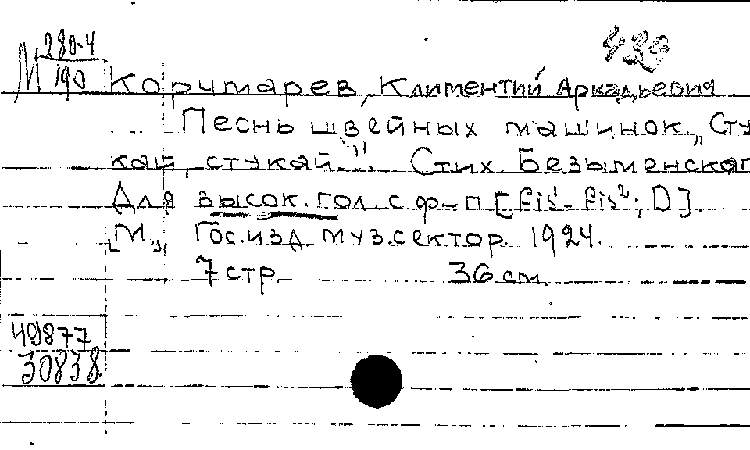 М 280-4
190
Корчмарев, Климентий Аркадьевич
Песнь швейных машинок „Сту
кай, стукай..." Стих. Безыменског
Для высок. гол. с ф-п [fis¹-fis²; D].
[М.], Гос. изд. муз. сектор. 1924.
7 стр. 36 см.
49877
30838